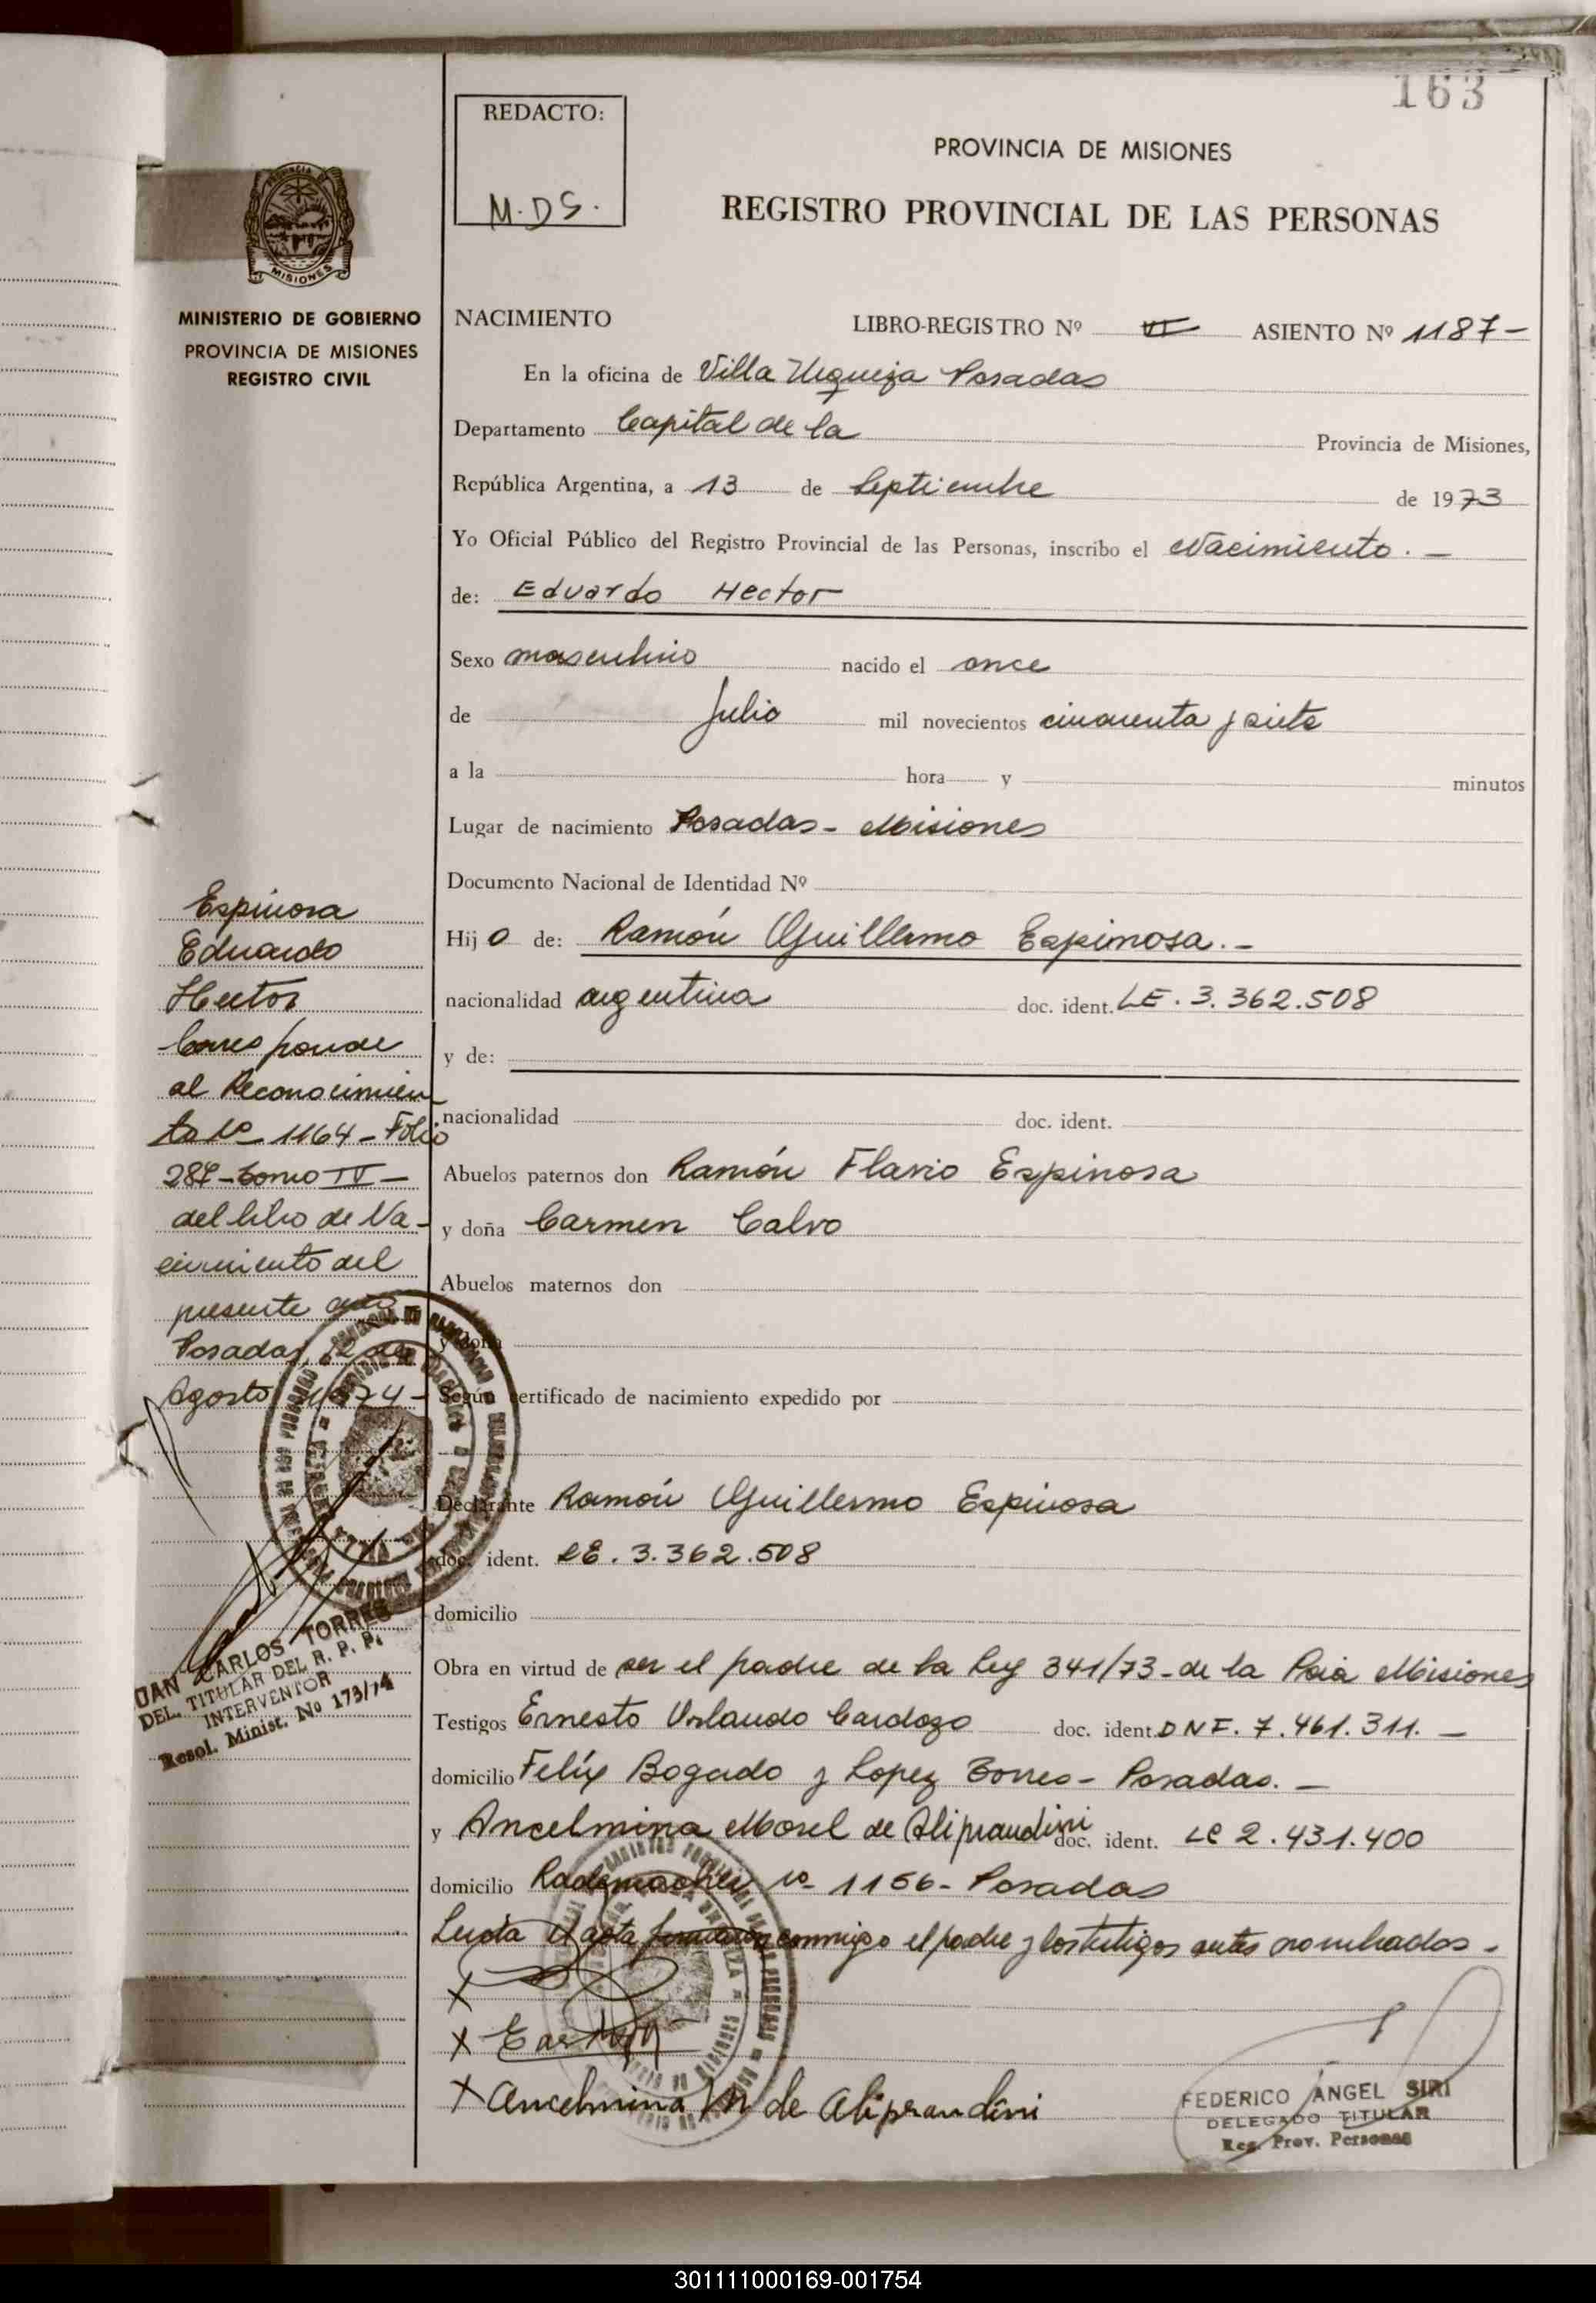 163
REDACTO:
M.DS.
PROVINCIA DE MISIONES
REGISTRO PROVINCIAL DE LAS PERSONAS
MISIONES
MINISTERIO DE GOBIERNO
PROVINCIA DE MISIONES
REGISTRO CIVIL
NACIMIENTO LIBRO-REGISTRO Nº VI ASIENTO Nº 1187-
En la oficina de Villa Urquiza Posadas
Departamento Capital de la Provincia de Misiones,
República Argentina, a 13 de Septiembre de 1973
Yo Oficial Público del Registro Provincial de las Personas, inscribo el Nacimiento.-
de: Eduardo Hector
Sexo masculino nacido el once
de Julio mil novecientos cincuenta y siete
a la hora y minutos
Lugar de nacimiento Posadas - Misiones
Documento Nacional de Identidad Nº
Hijo de: Ramón Guillermo Espinosa.-
nacionalidad argentina doc. ident. LE. 3.362.508
y de:
nacionalidad doc. ident.
Abuelos paternos don Ramón Flavio Espinosa
y doña Carmen Calvo
Abuelos maternos don
y doña
Según certificado de nacimiento expedido por
Declarante Ramón Guillermo Espinosa
doc. ident. LE. 3.362.508
domicilio
Obra en virtud de ser el padre de la Ley 341/73 - de la Pcia Misiones
Testigos Ernesto Orlando Cardozo doc. ident. DNI. 7.461.311. -
domicilio Felix Bogado y Lopez Torres - Posadas. -
y Ancelmina Morel de Aliprandini doc. ident. LC 2.431.400
domicilio Rademacher Nº 1156 - Posadas
Leida el acta conmigo el padre y los testigos antes nombrados -
X
X
X Ancelmina M de Aliprandini
FEDERICO ANGEL SIRI
DELEGADO TITULAR
Reg. Prov. Personas
Espinosa
Eduardo
Hector
Corresponde
al Reconocimien
to Nº 1164 - Folio
287 - tomo IV -
del libro de Na-
cimiento del
presente año
Posadas, 12 de
Agosto 1974 -
JUAN CARLOS TORRES
DEL. TITULAR DEL R. P. P.
INTERVENTOR
Resol. Minist. Nº 173/74
301111000169-001754